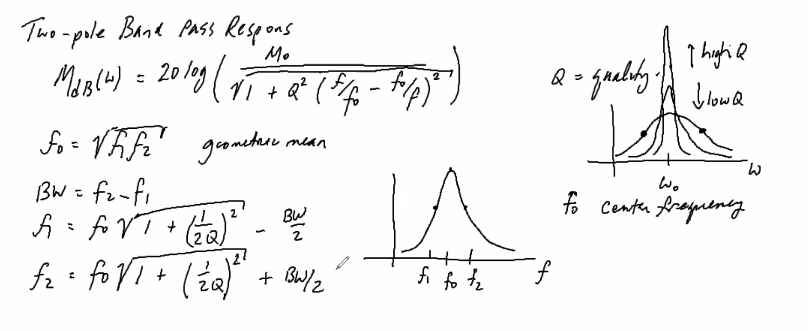 Two-pole Band Pass Respons
M_dB(ω) = 20 log ( M₀ / √(1 + Q² (f/f₀ - f₀/f)²) )
f₀ = √(f₁f₂) geometric mean
BW = f₂ - f₁
f₁ = f₀ √(1 + (1/2Q)²) - BW/2
f₂ = f₀ √(1 + (1/2Q)²) + BW/2
f₁ f₀ f₂ f
Q = quality
↑ high Q
↓ low Q
ω₀ ω
↑
f₀ center frequency